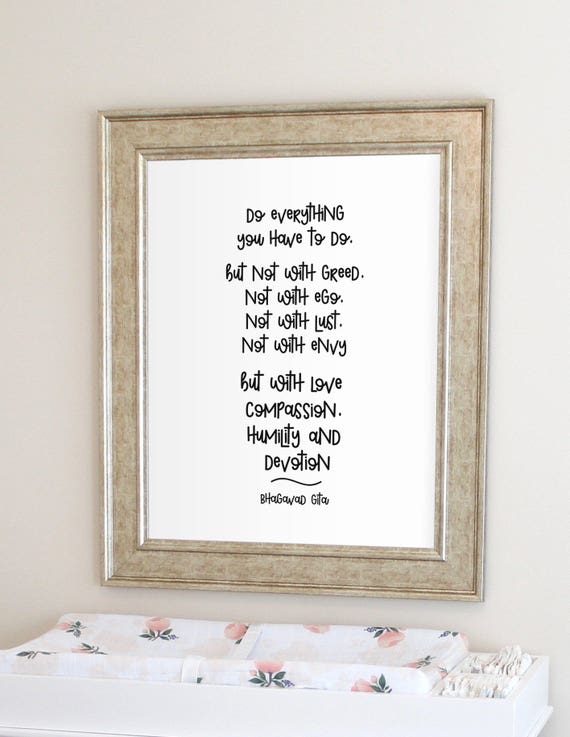 Do everything
you Have to Do.
But Not with Greed.
Not with eGo.
Not with Lust.
Not with eNvy
But with Love
Compassion.
Humility and
Devotion
BHaGavad Gita